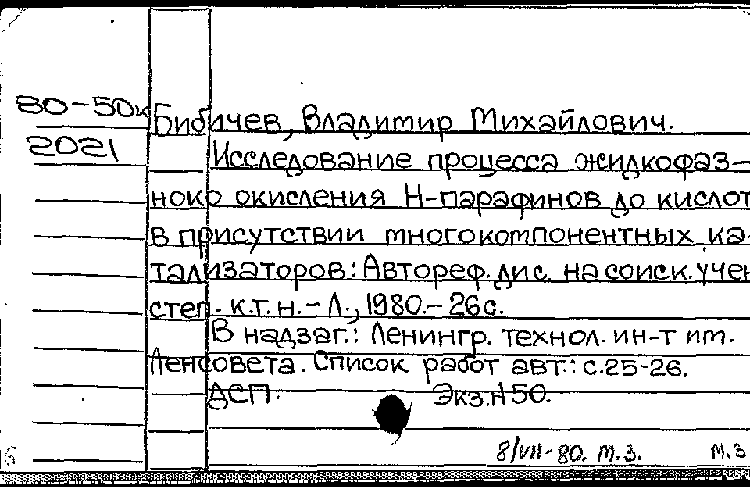 80-50к
2021
Бибичев, Владимир Михайлович.
Исследование процесса жидкофаз-
ного окисления Н-парафинов до кислот
в присутствии многокомпонентных ка-
тализаторов: Автореф. дис. на соиск. учен
степ. к.т.н. - Л., 1980. - 26с.
В надзаг.: Ленингр. технол. ин-т им.
Ленсовета. Список работ авт.: с.25-26.
ДСП. Экз.№50.
8/VII-80. М.З. М.З